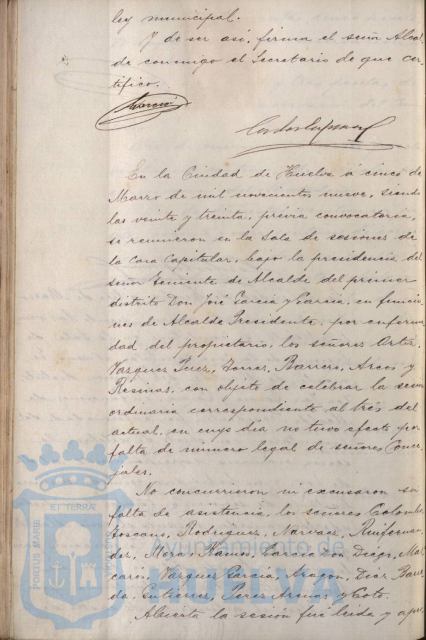 ley municipal.
Y de ser así, firma el señor Alcal
de conmigo el Secretario de que cer
tifico.
García
En la Ciudad de Huelva á cinco de
Marzo de mil novecientos nueve, siendo
las veinte y treinta, prévia convocatoria,
se reunieron en la Sala de sesiones de
la Casa Capitular, bajo la presidencia del
señor Teniente de Alcalde del primer
distrito Don José García y García, en funcio
nes de Alcalde Presidente, por enferme
dad del propietario, los señores Ortiz,
Vazquez Perez, Torres, Barrero, Arcos y
Resinas, con objeto de celebrar la sesion
ordinaria correspondiente al trés del
actual, en cuyo dia no tuvo efecto por
falta de número legal de señores Conce
jales.
No concurrieron ni excusaron su
falta de asistencia, los señores Colombo
Toscano, Rodriguez, Narvaez,
dez, Garcia de Diego, Mas
caros, Vazquez García, Aragon, Diaz
Gutierrez, Perez y Coto.
Abierta la sesión fué leida y apro
PORTUS MARIS ET TERRAE
Ayuntamiento de
HUELVA